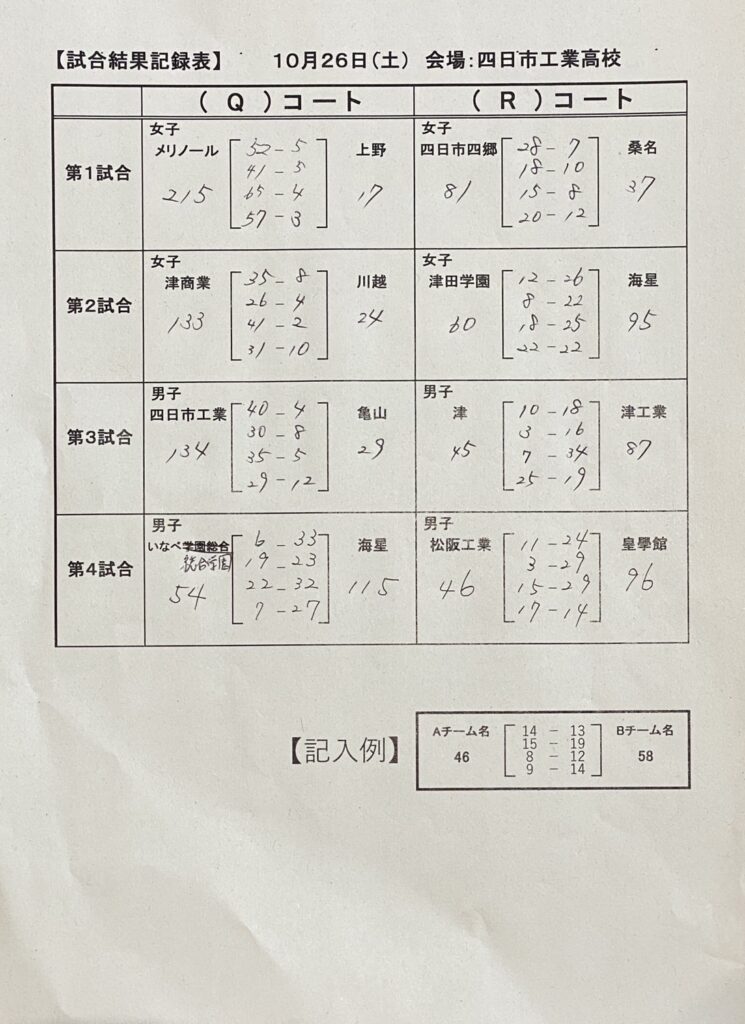 【試合結果記録表】 10月26日(土) 会場:四日市工業高校
( Q )コート ( R )コート
第1試合
女子
メリノール 上野
215 17
52 - 5
41 - 5
65 - 4
57 - 3
女子
四日市四郷 桑名
81 37
28 - 7
18 - 10
15 - 8
20 - 12
第2試合
女子
津商業 川越
133 24
35 - 8
26 - 4
41 - 2
31 - 10
女子
津田学園 海星
60 95
12 - 26
8 - 22
18 - 25
22 - 22
第3試合
男子
四日市工業 亀山
134 29
40 - 4
30 - 8
35 - 5
29 - 12
男子
津 津工業
45 87
10 - 18
3 - 16
7 - 34
25 - 19
第4試合
男子
いなべ学園総合 海星
総合学園
54 115
6 - 33
19 - 23
22 - 32
7 - 27
男子
松阪工業 皇學館
46 96
11 - 24
3 - 29
15 - 29
17 - 14
【記入例】
Aチーム名 Bチーム名
46 58
14 - 13
15 - 19
8 - 12
9 - 14